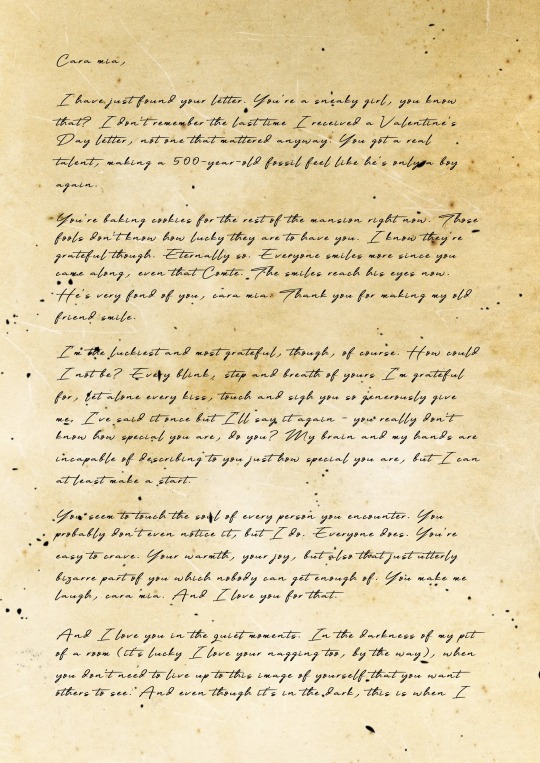 Cara mia,
I have just found your letter. You're a sneaky girl, you know
that? I don't remember the last time I received a Valentine's
Day letter, not one that mattered anyway. You got a real
talent, making a 500-year-old fossil feel like he's only a boy
again.
You're baking cookies for the rest of the mansion right now. Those
fools don't know how lucky they are to have you. I know they're
grateful though. Eternally so. Everyone smiles more since you
came along, even that Comte. The smiles reach his eyes now.
He's very fond of you, cara mia. Thank you for making my old
friend smile.
I'm the luckiest and most grateful, though, of course. How could
I not be? Every blink, step and breath of yours I'm grateful
for, let alone every kiss, touch and sigh you so generously give
me. I've said it once but I'll say it again - you really don't
know how special you are, do you? My brain and my hands are
incapable of describing to you just how special you are, but I can
at least make a start.
You seem to touch the soul of every person you encounter. You
probably don't even notice it, but I do. Everyone does. You're
easy to crave. Your warmth, your joy, but also that just utterly
bizarre part of you which nobody can get enough of. You make me
laugh, cara mia. And I love you for that.
And I love you in the quiet moments. In the darkness of my pit
of a room (it's lucky I love your nagging too, by the way), when
you don't need to live up to this image of yourself that you want
others to see. And even though it's in the dark, this is when I